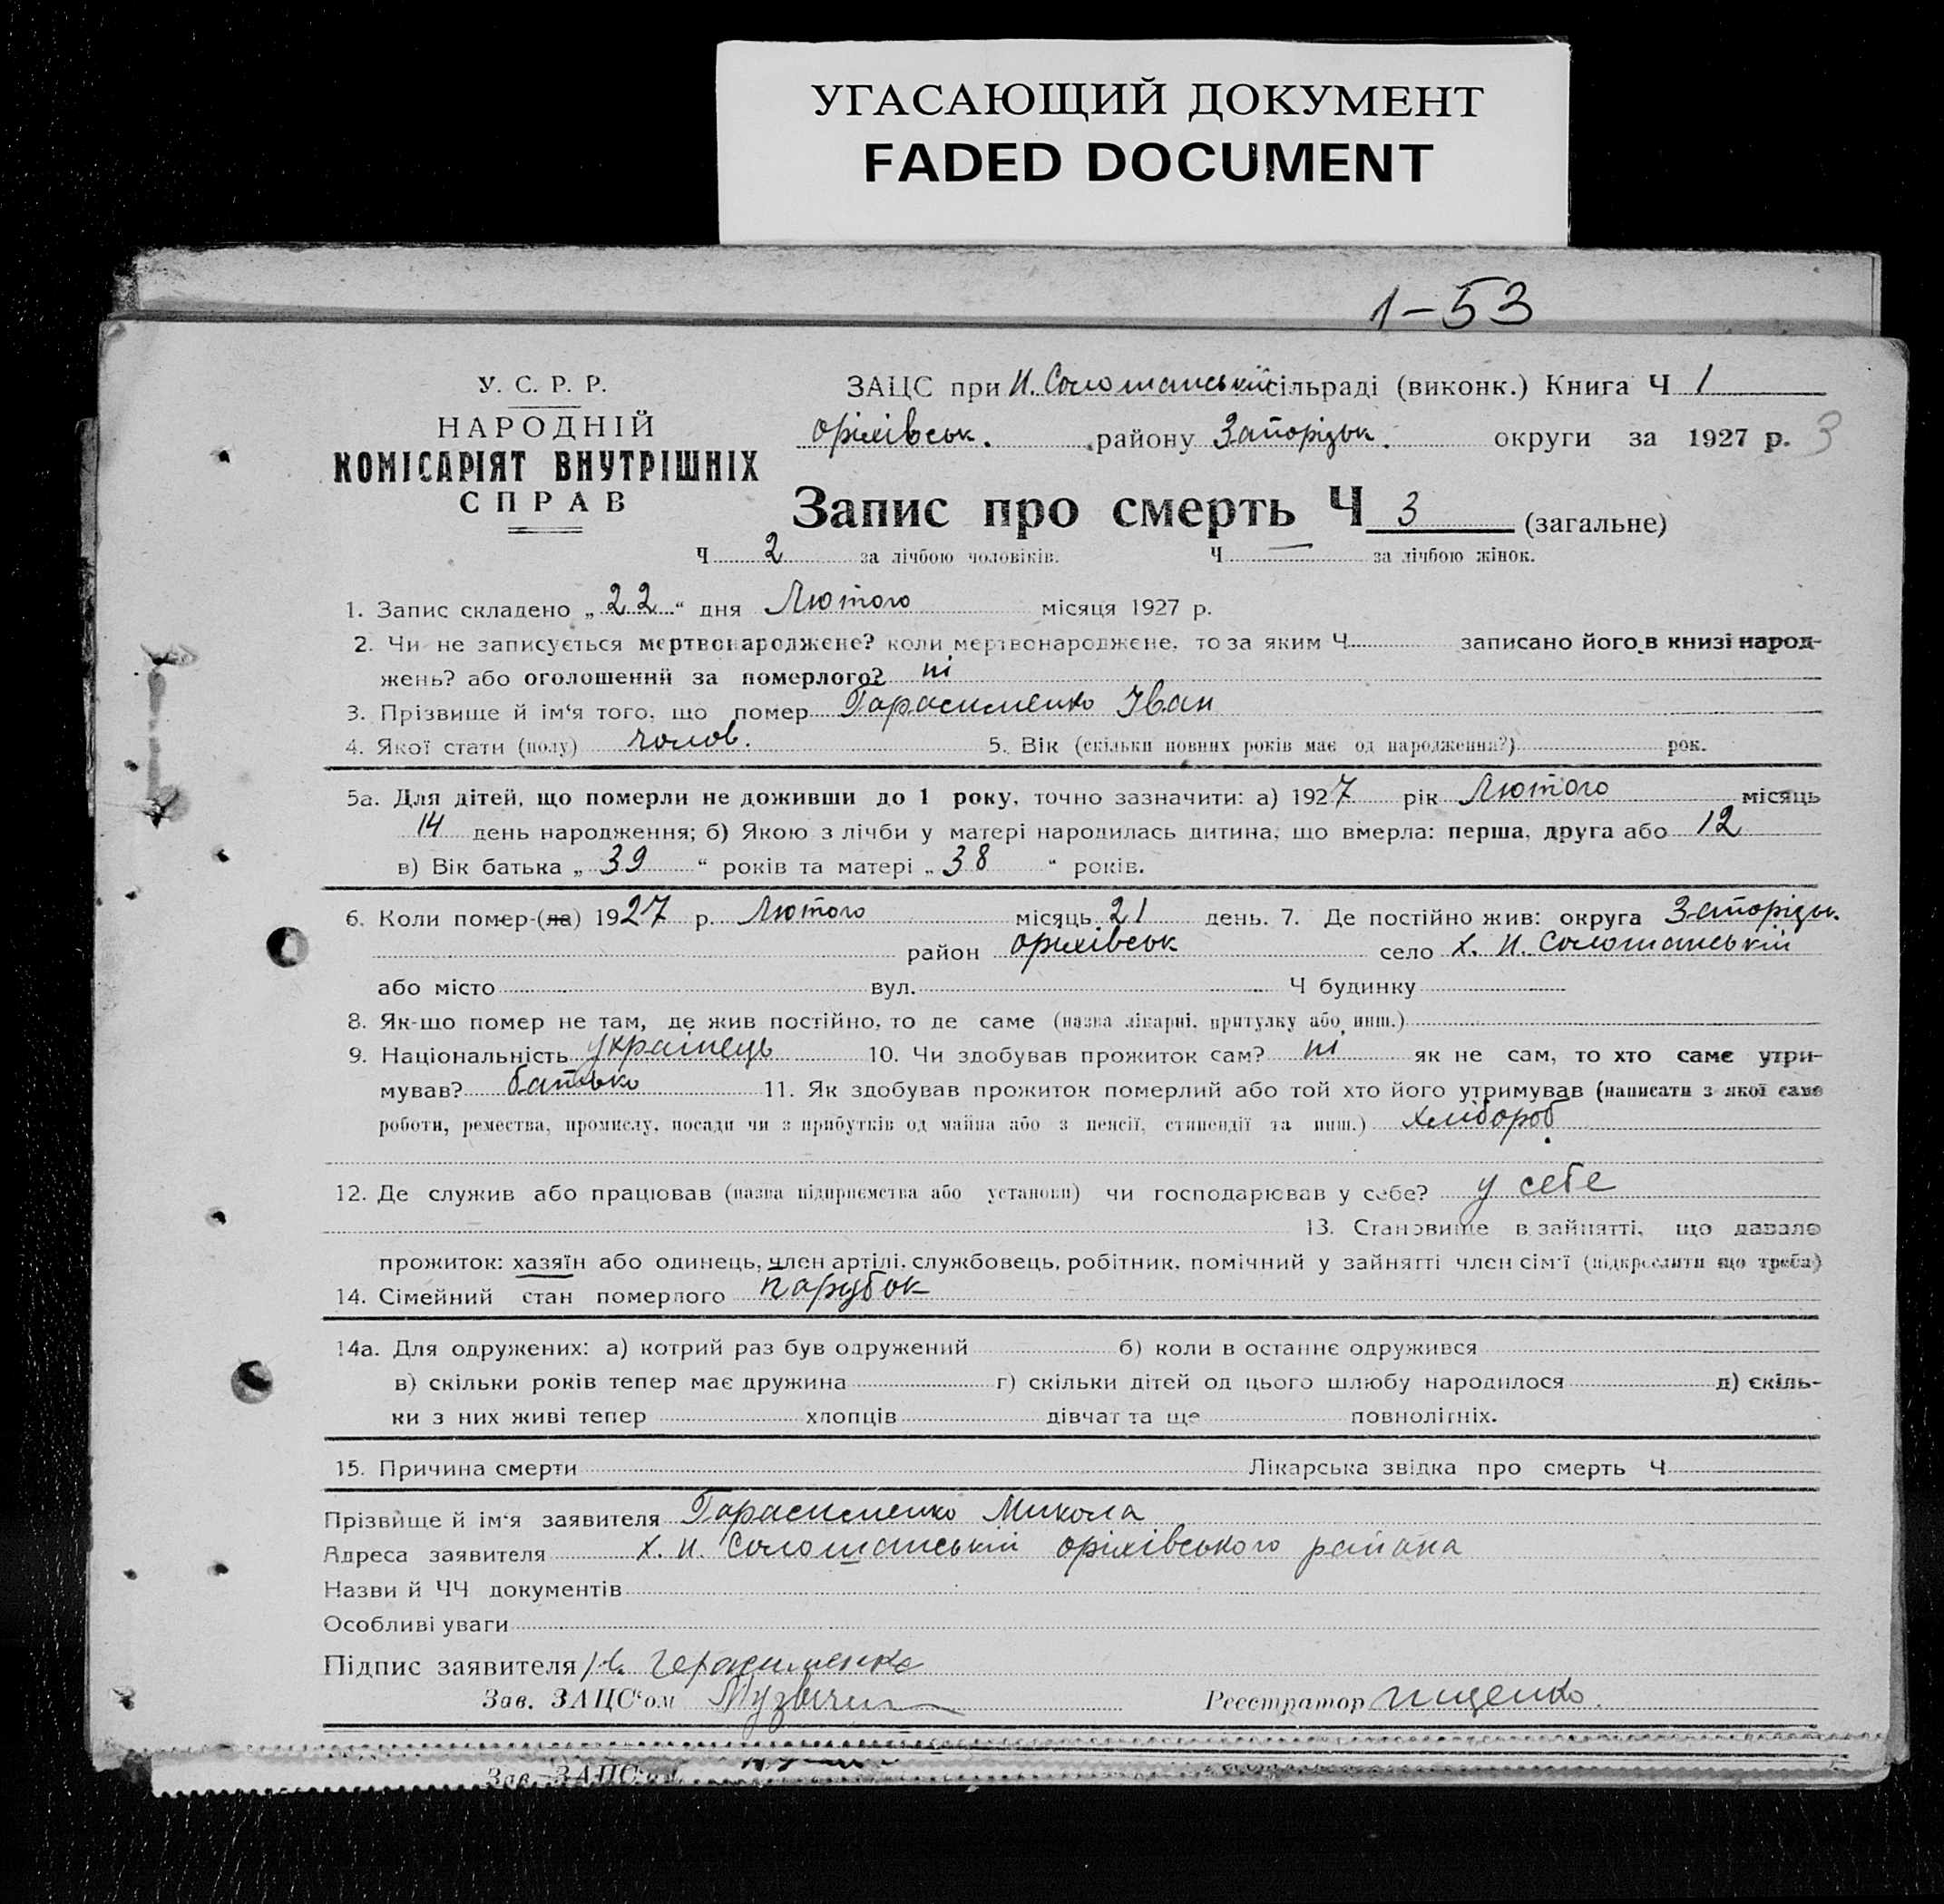 УГАСАЮЩИЙ ДОКУМЕНТ
FADED DOCUMENT
1-53
У. С. Р. Р.
НАРОДНІЙ
КОМІСАРІЯТ ВНУТРІШНІХ
СПРАВ
ЗАЦС при Н. Солошанській сільраді (виконк.) Книга Ч 1
Оріхівськ. району Запорізьк. округи за 1927 р. 3
Запис про смерть Ч 3 (загальне)
Ч 2 за лічбою чоловіків. Ч — за лічбою жінок.
1. Запис складено „22“ дня Лютого місяця 1927 р.
2. Чи не записується мертвонароджене? коли мертвонароджене, то за яким Ч записано його в книзі народ-
жень? або оголошений за померлого? ні
3. Прізвище й ім‘я того, що помер Гарасименко Іван
4. Якої стати (полу) чолов. 5. Вік (скільки повних років має од народження?) рок.
5а. Для дітей, що померли не доживши до 1 року, точно зазначити: а) 1927 рік Лютого місяць
14 день народження; б) Якою з лічби у матері народилась дитина, що вмерла: перша, друга або 12
в) Вік батька „39“ років та матері „38“ років.
6. Коли помер-(ла) 1927 р. Лютого місяць 21 день. 7. Де постійно жив: округа Запорізьк.
район Оріхівськ село х. Н. Солошанській
або місто вул. Ч будинку
8. Як-що помер не там, де жив постійно, то де саме (назва лікарні, притулку або инш.)
9. Національність українець 10. Чи здобував прожиток сам? ні як не сам, то хто саме утри-
мував? батько 11. Як здобував прожиток померлий або той хто його утримував (написати з якої саме
роботи, ремества, промислу, посади чи з прибутків од майна або з пенсії, стипендії та инш.) хлібороб
12. Де служив або працював (назва підприємства або установи) чи господарював у себе? у себе
13. Становище в зайнятті, що давало
прожиток: хазяїн або одинець, член артілі, службовець, робітник, помічний у зайнятті член сім‘ї (підкреслити що треба)
14. Сімейний стан померлого парубок
14а. Для одружених: а) котрий раз був одружений б) коли в останнє одружився
в) скільки років тепер має дружина г) скільки дітей од цього шлюбу народилося д) скіль-
ки з них живі тепер хлопців дівчат та ще повнолітніх.
15. Причина смерти Лікарська звідка про смерть Ч
Прізвище й ім‘я заявителя Гарасименко Микола
Адреса заявителя х. Н. Солошанській Оріхівського района
Назви й ЧЧ документів
Особливі уваги
Підпис заявителя Герасименко
Зав. ЗАЦС‘ом Реєстратор Іщенко.
Зав. ЗАЦС‘ом